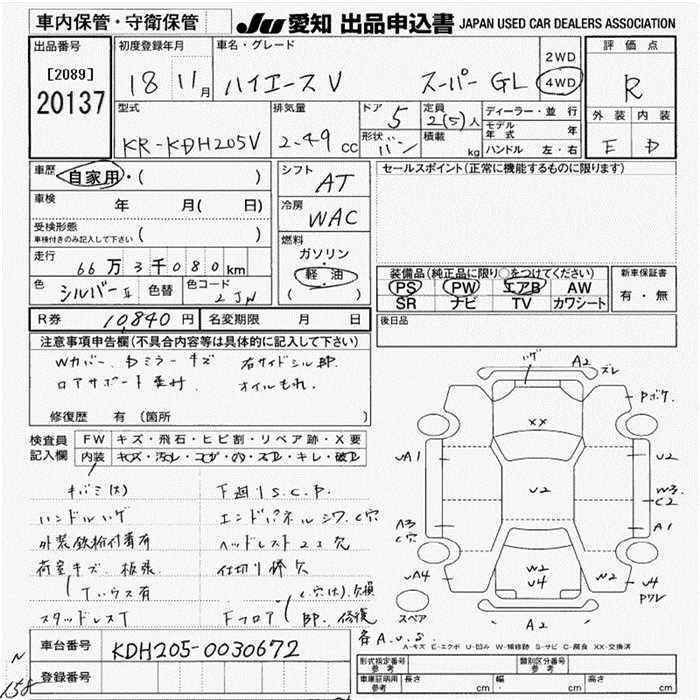 車内保管・守衛保管
JU 愛知 出品申込書 JAPAN USED CAR DEALERS ASSOCIATION
出品番号
[2089]
20137
初度登録年月
18 11月
車名・グレード
ハイエースV スーパーGL
2WD
4WD
評価点
R
外装 内装
E D
型式
KR-KDH205V
排気量
2.49 cc
ドア 5
形状 バン
定員 2(5)人
積載 kg
ディーラー・並行
モデル年式 年
ハンドル 左・右
車歴 自家用・( )
車検 年 月( 日)
受検形態
車検付きのみ記入して下さい ( )
走行
66万3千080km
色 シルバーII 色替
色コード
2JW
シフト
AT
冷房
WAC
燃料
ガソリン
・
軽油
( )
セールスポイント(正常に機能するものに限ります)
装備品(純正品に限り○をつけてください)
PS PW エアB AW
SR ナビ TV カワシート
新車保証書
有・無
R券 10,840円
名変期限 月 日
後日品
注意事項申告欄(不具合内容等は具体的に記入して下さい)
Wカバー、Dミラーキズ 右サイドシル
ロアサポート オイルもれ.
修復歴 有(箇所 )
検査員記入欄
FW キズ・飛石・ヒビ割・リペア跡・X要
内装 キズ・汚れ・コゲ・穴・スレ・キレ・破れ
キバミ(大) 下廻りS.C.P.
ハンドルハゲ エンドパネルシワ、C穴
外装鉄粉付着有 ヘッドレスト2コ欠
荷室キズ、板張 仕切り棒欠
Tハウス有 C穴(大)、欠損
スタッドレスT Fフロア 修復
ハゲ
A2
ズレ
Pボケ
XX
UA1
U2
U2
W3
C2
A3
C穴
A1
W2
U4
W2
UA4
U4
Pワレ
スペア
A2
各A.U.S.
A-キズ E-エクボ U-凹み W-補修跡 S-サビ C-腐食 XX-交換済
車台番号 KDH205-0030672
登録番号
N
158
形式指定番号
参考
類別区分番号
参考
車庫証明用
参考
長さ cm 幅 cm 高さ cm